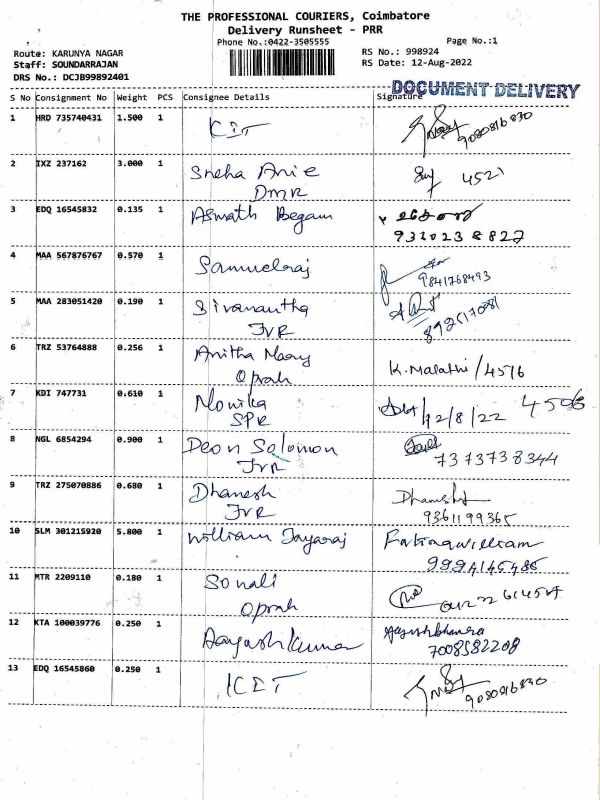 THE PROFESSIONAL COURIERS, Coimbatore
Delivery Runsheet - PRR
Phone No.:0422-3505555
Page No.:1
Route: KARUNYA NAGAR
RS No.: 998924
Staff: SOUNDARRAJAN
RS Date: 12-Aug-2022
DRS No.: DCJB99892401
DOCUMENT DELIVERY
S No Consignment No Weight PCS Consignee Details Signature
1 HRD 735740431 1.500 1
9080816830
2 IXZ 237162 3.000 1 Sneha Anie 4521
DMR
3 EDQ 16545832 0.135 1 Aswath Begam
4 MAA 567876767 0.570 1 Samuelraj
9841768493
5 MAA 283051420 0.190 1 Sivanantha
JVR
6 TRZ 53764888 0.256 1 Anitha Mary K.Malathi/4516
Oprah
7 KDI 747731 0.610 1 Monika 12/8/22 4506
SPR
8 NGL 6854294 0.900 1 Deon Solomon
JVR 7373738344
9 TRZ 275070886 0.680 1 Dhanesh
JVR 9361199365
10 SLM 301215920 5.800 1 William Jayaraj
11 MTR 2209110 0.180 1 Sonali
Oprah
12 KTA 100039776 0.250 1 Aayush Kumar
7008582208
13 EDQ 16545860 0.250 1
9080816830